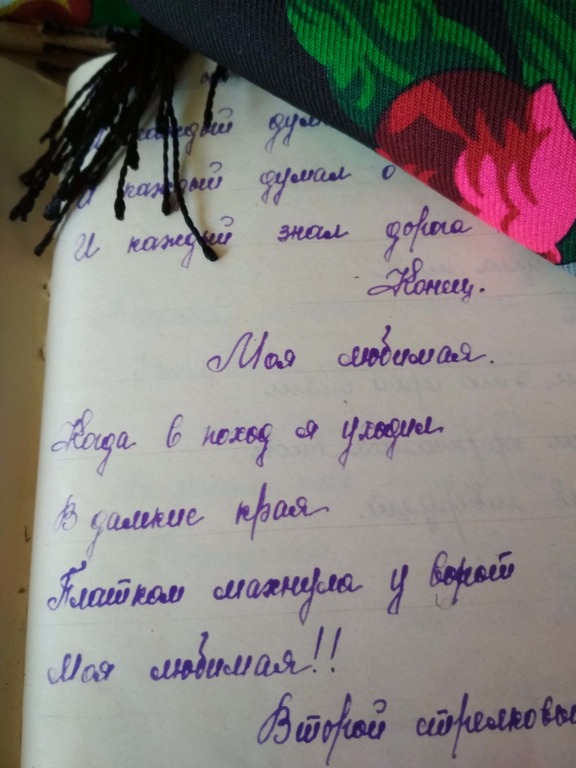 И каждый
И каждый думал о
И каждый знал дорога
Конец.
Моя любимая.
Когда в поход я уходил
В далекие края
Платком махнула у ворот
Моя любимая!!
Второй стрелковый